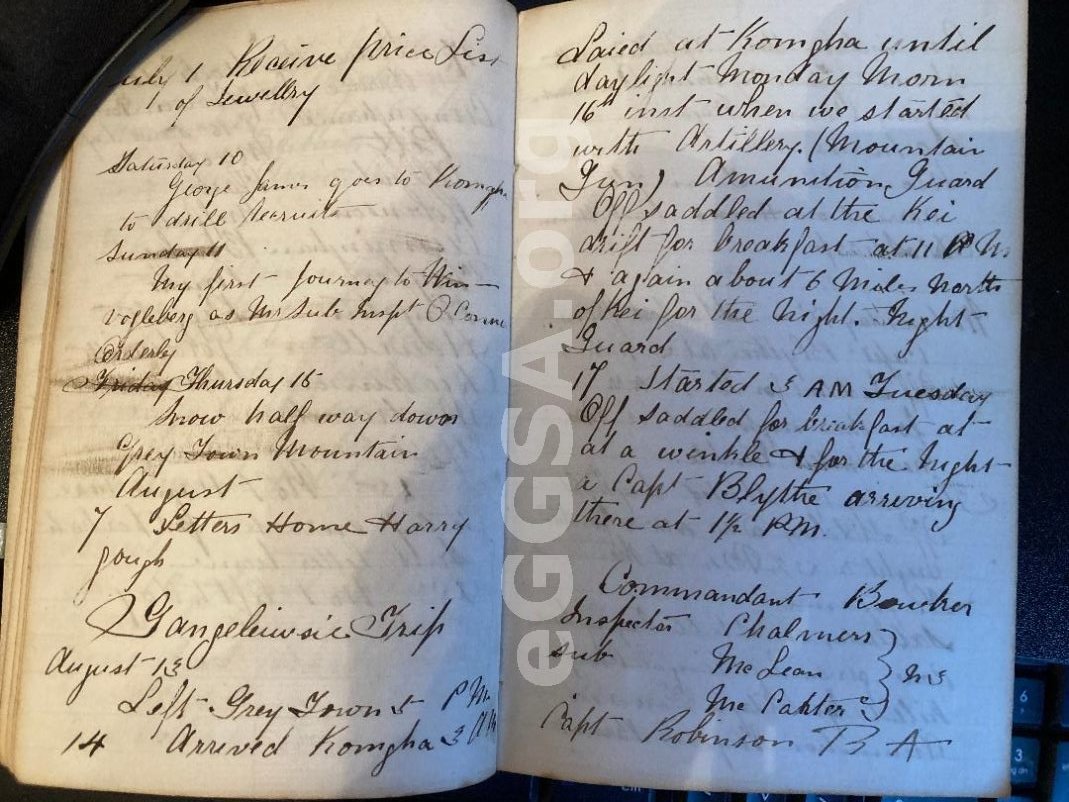 July 1 Receive price Lis
of Jewellry
Saturday 10
George James goes to Komgha
to drill Recruits
Sunday 11
My first Journey to
vogleberg as Mr Sub Inspt
Orderly
Friday Thursday 15
Snow half way down
Grey Town Mountain
August
7 Letters Home Harry
gough
Trip
August 13
Left Grey Town 5 P M
14 Arrived Komgha 3 A M
Laied at Komgha until
daylight Monday Morn
16 inst when we started
with Artillery. (Mountain
Gun) Amunition Guard
Off saddled at the Kei
drift for breakfast at 11 A M
& again about 6 Miles North
of Kei for the Night. Night
Guard
17 Started 3 AM Tuesday
Off saddled for breakfast at
at a winkle & for the Night
a Capt Blythe arriving
there at 1½ P.M.
Commandant Bowker
Inspector Chalmers
sub McLean
Capt Robinson R A
eGGSA.org